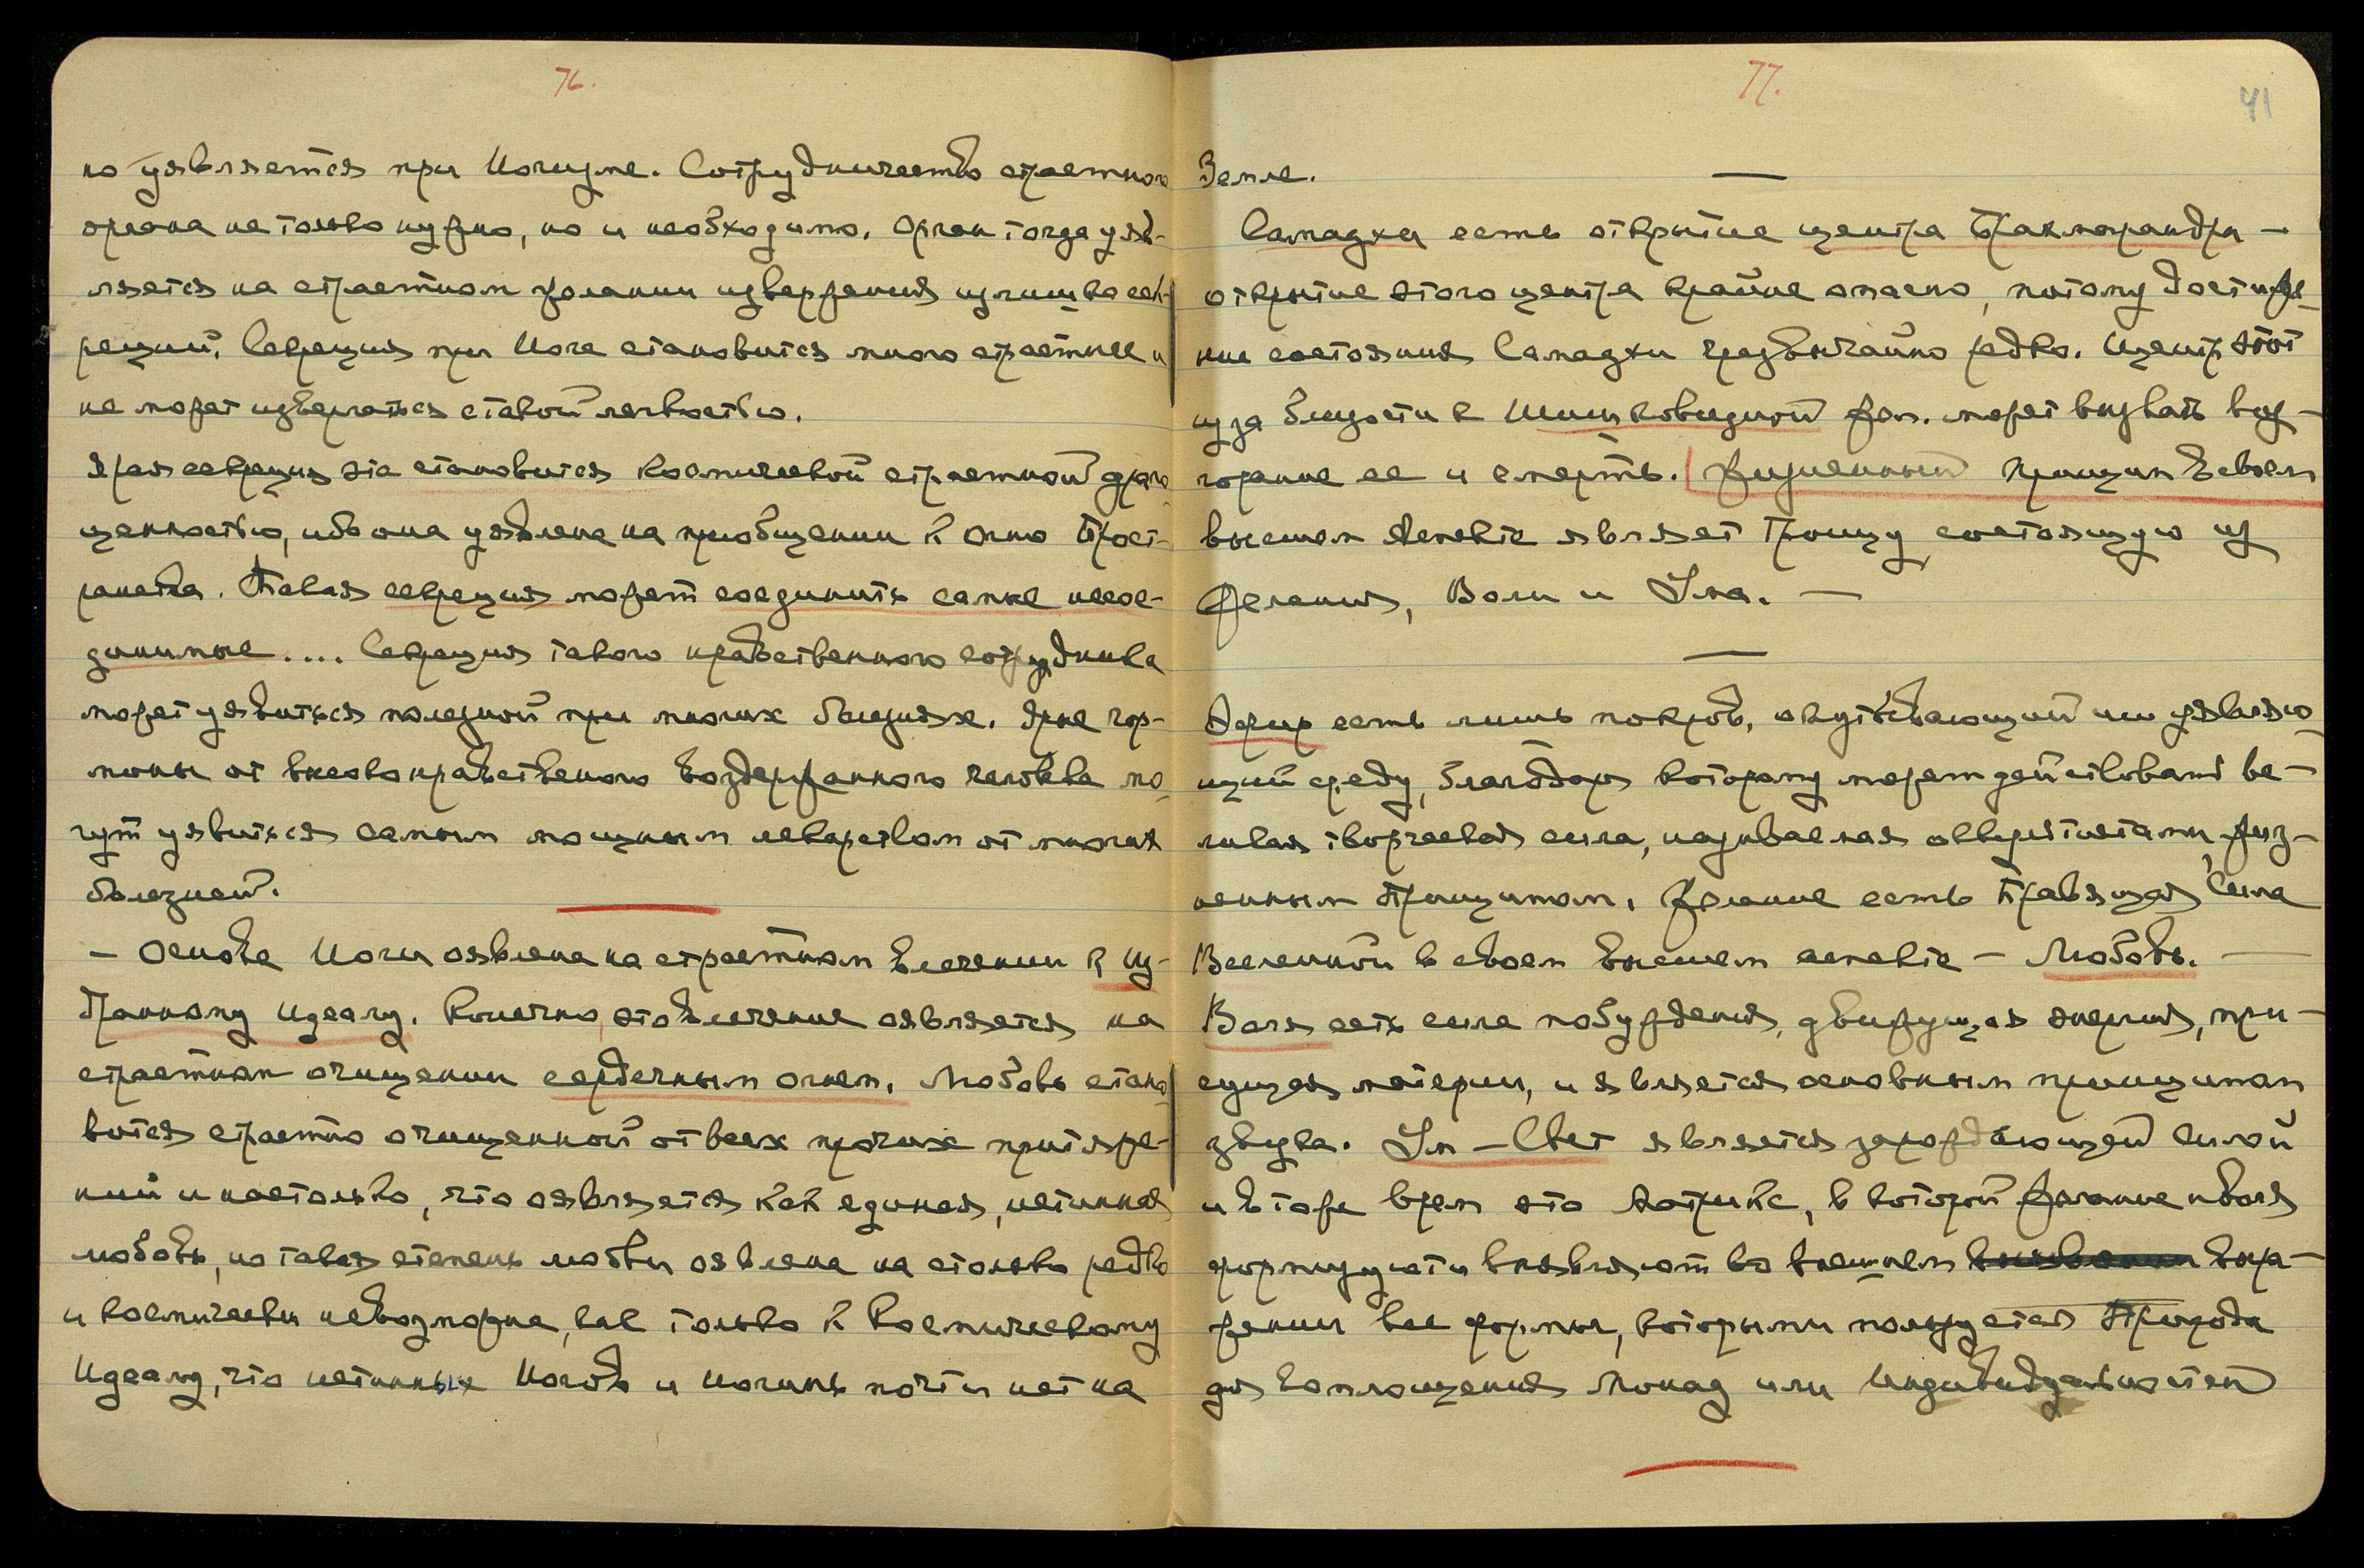 76.
но уявляется при Иогизме. Сотрудничество страстного
органа не только нужно, но и необходимо. Орган тогда уяв-
ляется на страстном желании извержения излишка сек-
реций. Секреция при Иоге становится много страстнее и
не может извергаться с такой легкостью.
Ярая секреция эта становится космической страстной драго
ценностью, ибо она уявлена на приобщении к Огню Прост-
ранства. Такая секреция может соединить самые несое-
динимые.... Секреция такого нравственного сотрудника
может уявиться полезной при многих болезнях. Ярые гор-
моны от высоко нравственного воздержанного человека мо-
гут уявиться самым мощным лекарством от многих
болезней.
— Основа Иоги оявлена на страстном влечении к Из-
бранному Идеалу. Конечно, это влечение оявляется на
страстном очищении сердечным огнем. Любовь стано-
вится страстно очищенной от всех прочих притяже-
ний и настолько, что оявляется как единая, истинная
любовь, но такая степень любви оявлена на столько редко
и космически невозможна, как только к Космическому
Идеалу, что истинных Иогов и Иогинь почти нет на
77.
41
Земле.
Самадхи есть открытие центра Брахмарандра —
открытие этого центра крайне опасно, потому достиже-
ние состояния Самадхи чрезвычайно редко. Центр этот
из за близости к Шишковидной жел. может вызвать воз-
горание ее и смерть. Жизненный принцип в своем
высшем Аспекте являет Троицу состоящую из
Желания, Воли и Ума. —
Эфир есть лишь покров, окутывающий или уявляю-
щий среду, благодаря которому может действовать ве-
ликая творческая сила, называемая оккультистами жиз-
ненным принципом. Желание есть Правящая Сила
Вселенной в своем высшем аспекте — Любовь. —
Воля есть сила побуждения, движущая энергия, при-
сущая материи, и является основным принципом
звука. Ум — Свет является зарождающей силой
и в тоже врем это Матрикс, в которой желание и воля
формируют и выявляют во внешнем выра-
жении все формы, которыми пользуется Природа
для воплощения Монад или Индивидуальностей